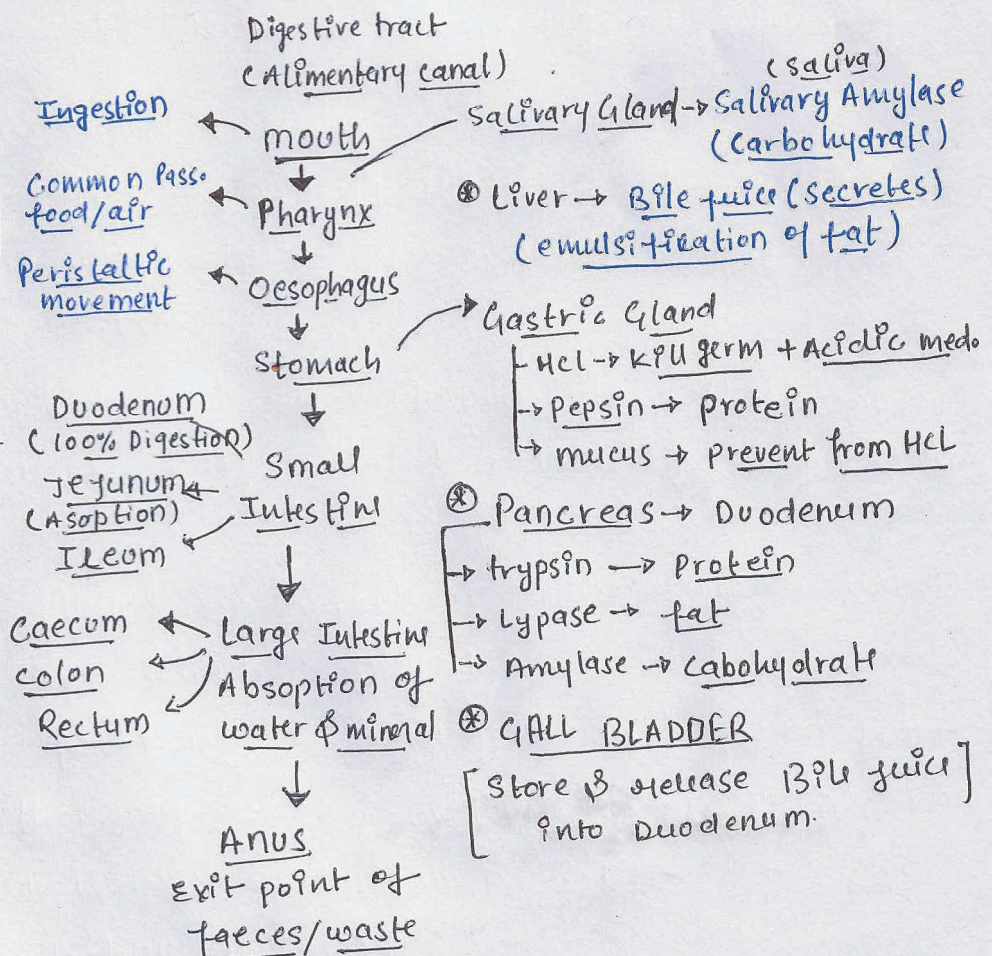 Digestive tract
(Alimentary canal)
Ingestion
mouth
Common Pass.
food/air
Pharynx
Peristaltic
movement
Oesophagus
Stomach
Duodenum
(100% Digestion)
Jejunum
(Asoption)
Ileum
Small
Intestine
Caecum
colon
Rectum
Large Intestine
Absoption of
water & mineral
Anus
Exit point of
faeces/waste
(saliva)
Salivary Gland → Salivary Amylase
(Carbohydrate)
⊛ Liver → Bile juice (secretes)
(emulsification of fat)
Gastric Gland
Hcl → Kill germ + Acidic med.
→ Pepsin → protein
→ mucus → prevent from HCL
⊛ Pancreas → Duodenum
→ trypsin → Protein
→ Lypase → fat
→ Amylase → cabohydrate
⊛ GALL BLADDER
[Store & release Bile juice]
into Duodenum.